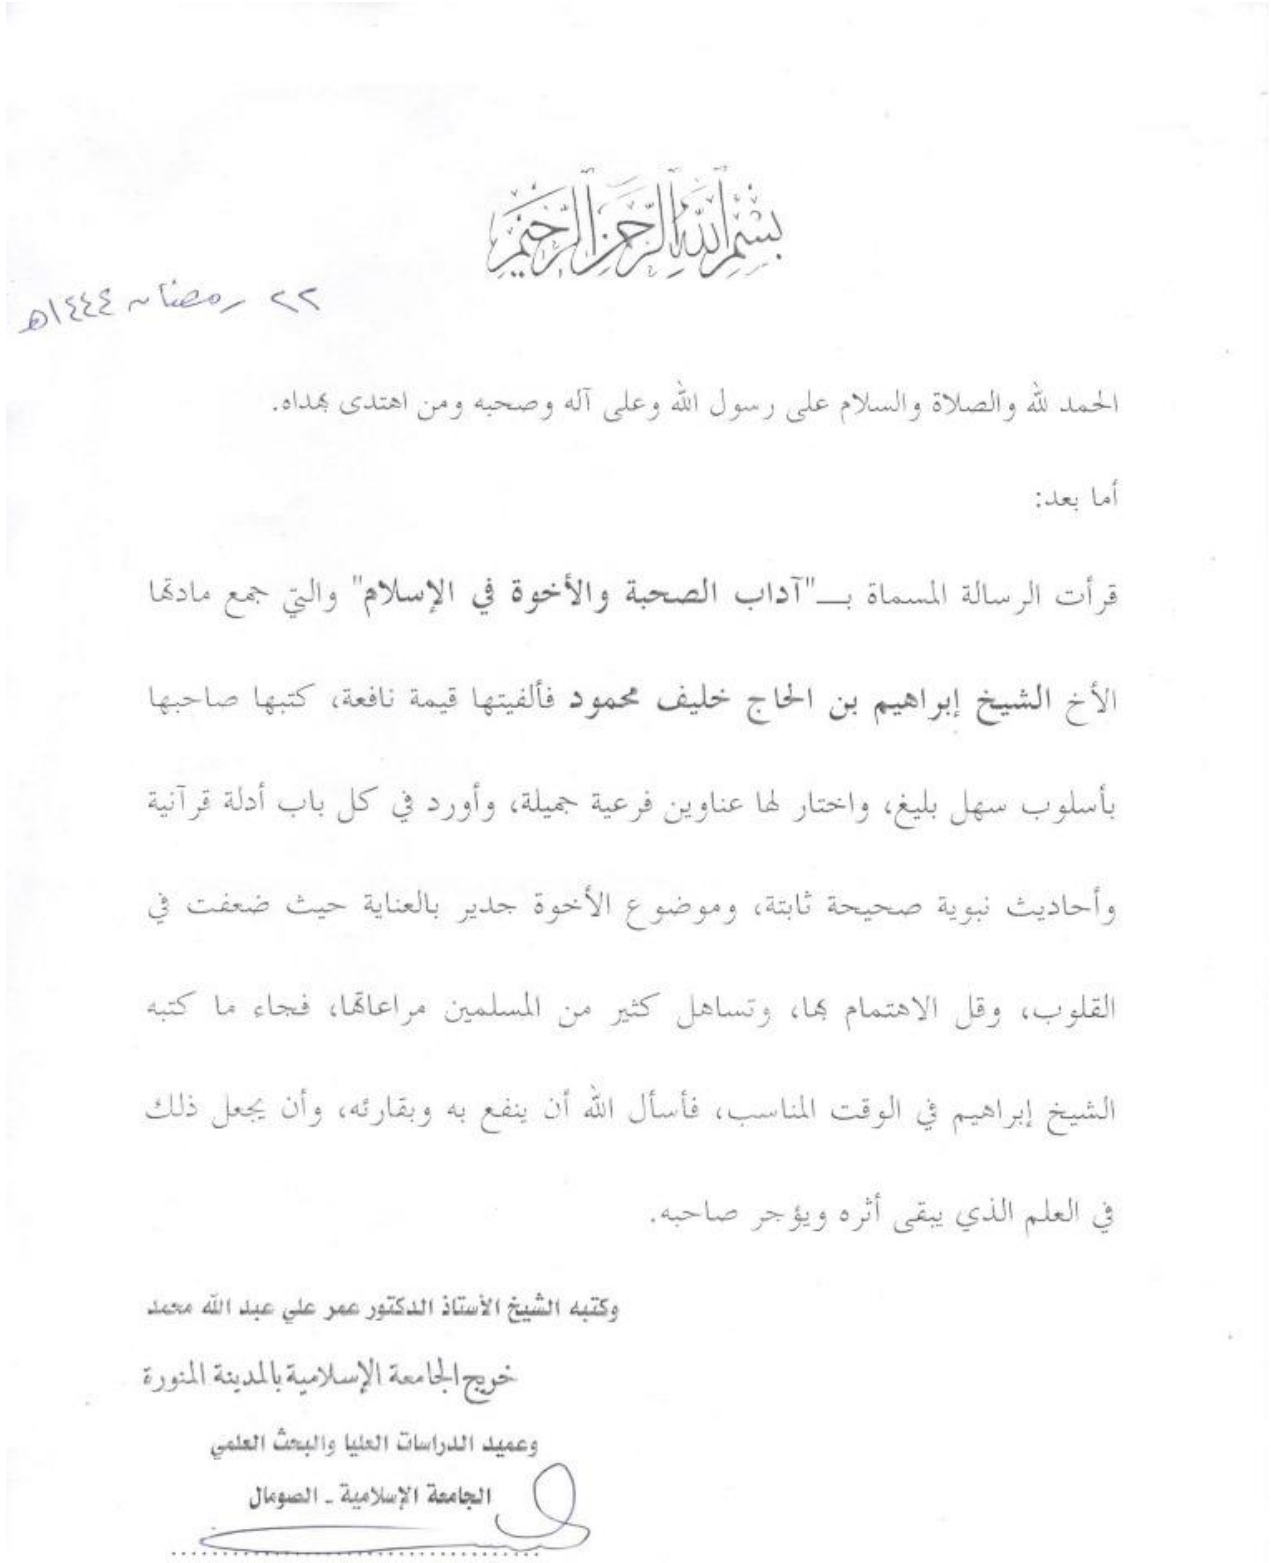 بسم الله الرحمن الرحيم
٢٢ رمضان ١٤٤٤هـ
الحمد لله والصلاة والسلام على رسول الله وعلى آله وصحبه ومن اهتدى بهداه.
أما بعد:
قرأت الرسالة المسماة بــ"آداب الصحبة والأخوة في الإسلام" والتي جمع مادتها
الأخ الشيخ إبراهيم بن الحاج خليف محمود فألفيتها قيمة نافعة، كتبها صاحبها
بأسلوب سهل بليغ، واختار لها عناوين فرعية جميلة، وأورد في كل باب أدلة قرآنية
وأحاديث نبوية صحيحة ثابتة، وموضوع الأخوة جدير بالعناية حيث ضعفت في
القلوب، وقل الاهتمام بها، وتساهل كثير من المسلمين مراعاتها، فجاء ما كتبه
الشيخ إبراهيم في الوقت المناسب، فأسأل الله أن ينفع به وبقارئه، وأن يجعل ذلك
في العلم الذي يبقى أثره ويؤجر صاحبه.
وكتبه الشيخ الأستاذ الدكتور عمر علي عبد الله محمد
خريج الجامعة الإسلامية بالمدينة المنورة
وعميد الدراسات العليا والبحث العلمي
الجامعة الإسلامية - الصومال